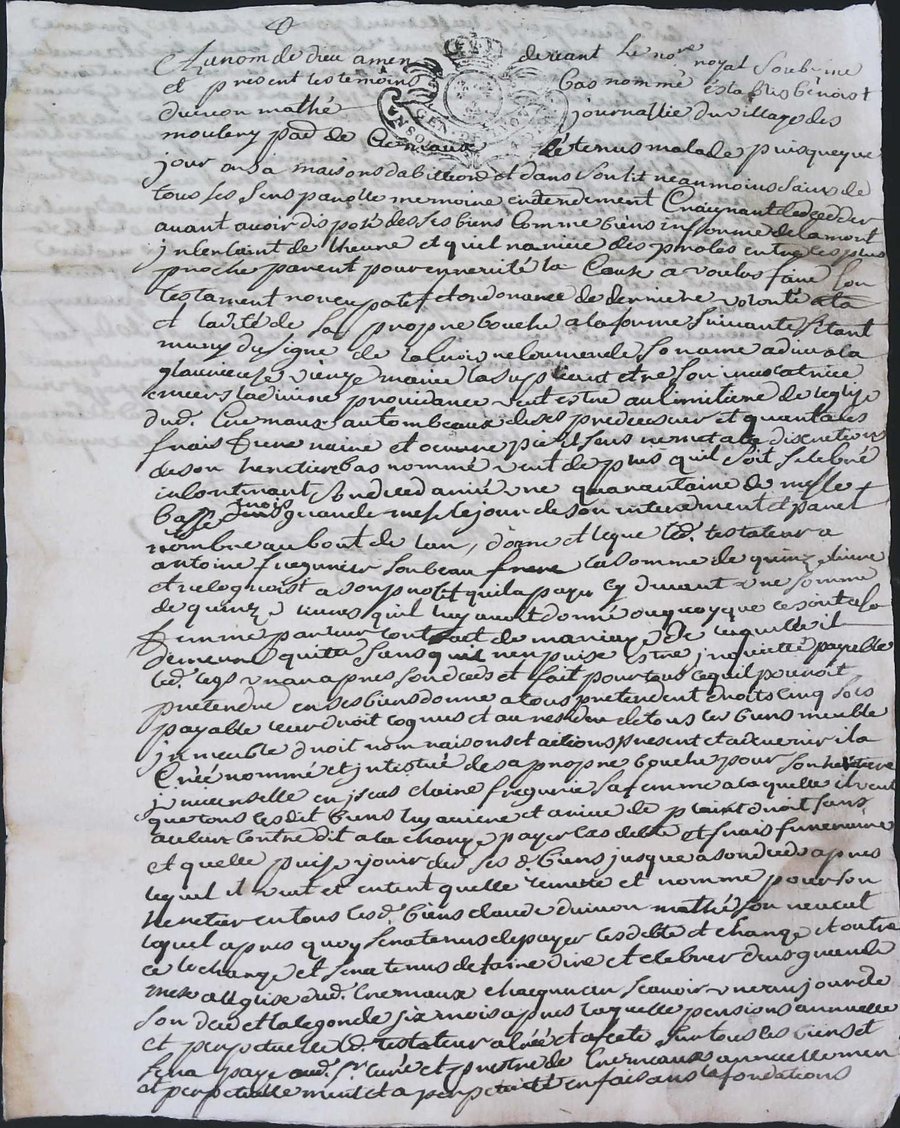 Au nom de dieu amen devant le nore royal soubsine
et present les temoins bas nommé establis benoist
duivon mathé journallie du village des
mouleny parr de Cremaux détenus malade puis queque
jour en sa maison d'abittiond et dans son lit neanmoins sain de
tous ses sens parolle memoire entendement Craignant
avant avoir dispozé de ses biens comme biens informé de la mort
incertaint de l'heure et quil naniee des proles entre ses plus
proche parent pour en verité la Cause a voulus faire son
testament noncupatif et ordonance de derniere volonté
et de sa propre bouche a la forme suivante s'etant
muny du signe de la Croix recommende son ame a dieu a la
glorieuse vierge marie la supliant etre son avocatrice
envers la divine providance veut estre au cimetiere de leglize
dud. Cremaux au tombeaux de ses predecesseur et quant a ses
frais funeraire et oeuvre pie il s'en remet a la discretion
de son heritiere bas nommé veut de plus quil soit selebré
incontinant son deced arrivé une quarantaine de messe
basse trois grande messe le jour de son enterrement et pareil
nombre au bout de lan, donne et legue led. testateur a
antoine son beau frere la somme de quinze livre
et reconnoist a son profit quil a payé cy devant une somme
de quinze livres quil luy avoit donné ou quoy que ce soit a la
femme par leur contract de mariage de laquelle il
demeure quitte sans quil n'en puise estre inquietté payable
led. legs un an apres son deceds et fait pour tous ce quil pouroit
pretendre en ses biens donne a tous pretendent droits cinq sols
payable leur droit cognus et au residu de tous ces biens meuble
immeuble droit nom raisons et actions present et a venir il a
Creé nommé et institué de sa propre bouche pour son heritiere
universelle claire sa femme a laquelle il veut
que tous lesdit biens luy arrive et avine de plaint droit sans
aucun contredit a la charge payer les debte et frais funeraire
et quelle puise jouir de ses d. biens jusque a son deced apres
lequel il veut et entent quelle remette et nomme pour son
heretier en tous lesd. biens claude duivon mathé son neveut
lequel apres quoy sera tenus de payer les debte et charge et outre
ce le charge et sera tenus de faire dire et celebrer deus grande
mese a l'Eglise dud. Cremaux chaqun an scavoir une au jour de
son deced et la segonde six mois apres laquelle pensions annuelle
et perpetuelle led. testateur a leée et afecté sur tous les biens et
sera payé aud. sr curé et prestre de Cremeaux annuellemen
et perpetuellement et a perpetuité en faisans la fondations
GEN DE LYON